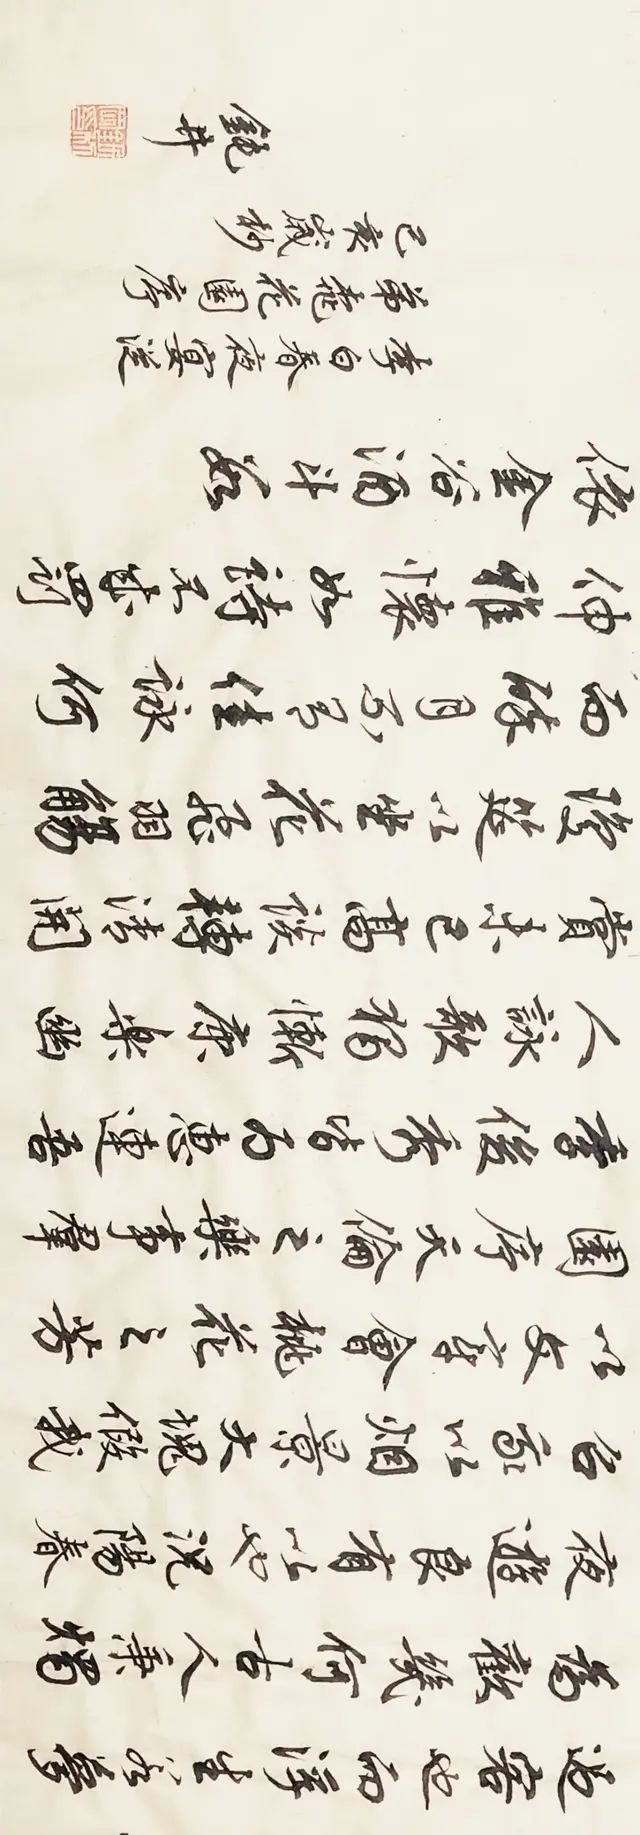 過客也而浮生若夢
為歡幾何古人秉燭
夜遊良有以也況陽春
召我以烟景大塊假我
以文章會桃花之芳
園序天倫之樂事羣
季俊秀皆為惠連吾
人詠歌獨慚康楽幽
賞未已高談轉清開
瓊筵以坐花飛羽觴
而醉月不有佳詠何
伸雅懷如詩不成罰
依金谷酒斗數
李白春夜宴從
弟桃花園序
己亥歲杪
井